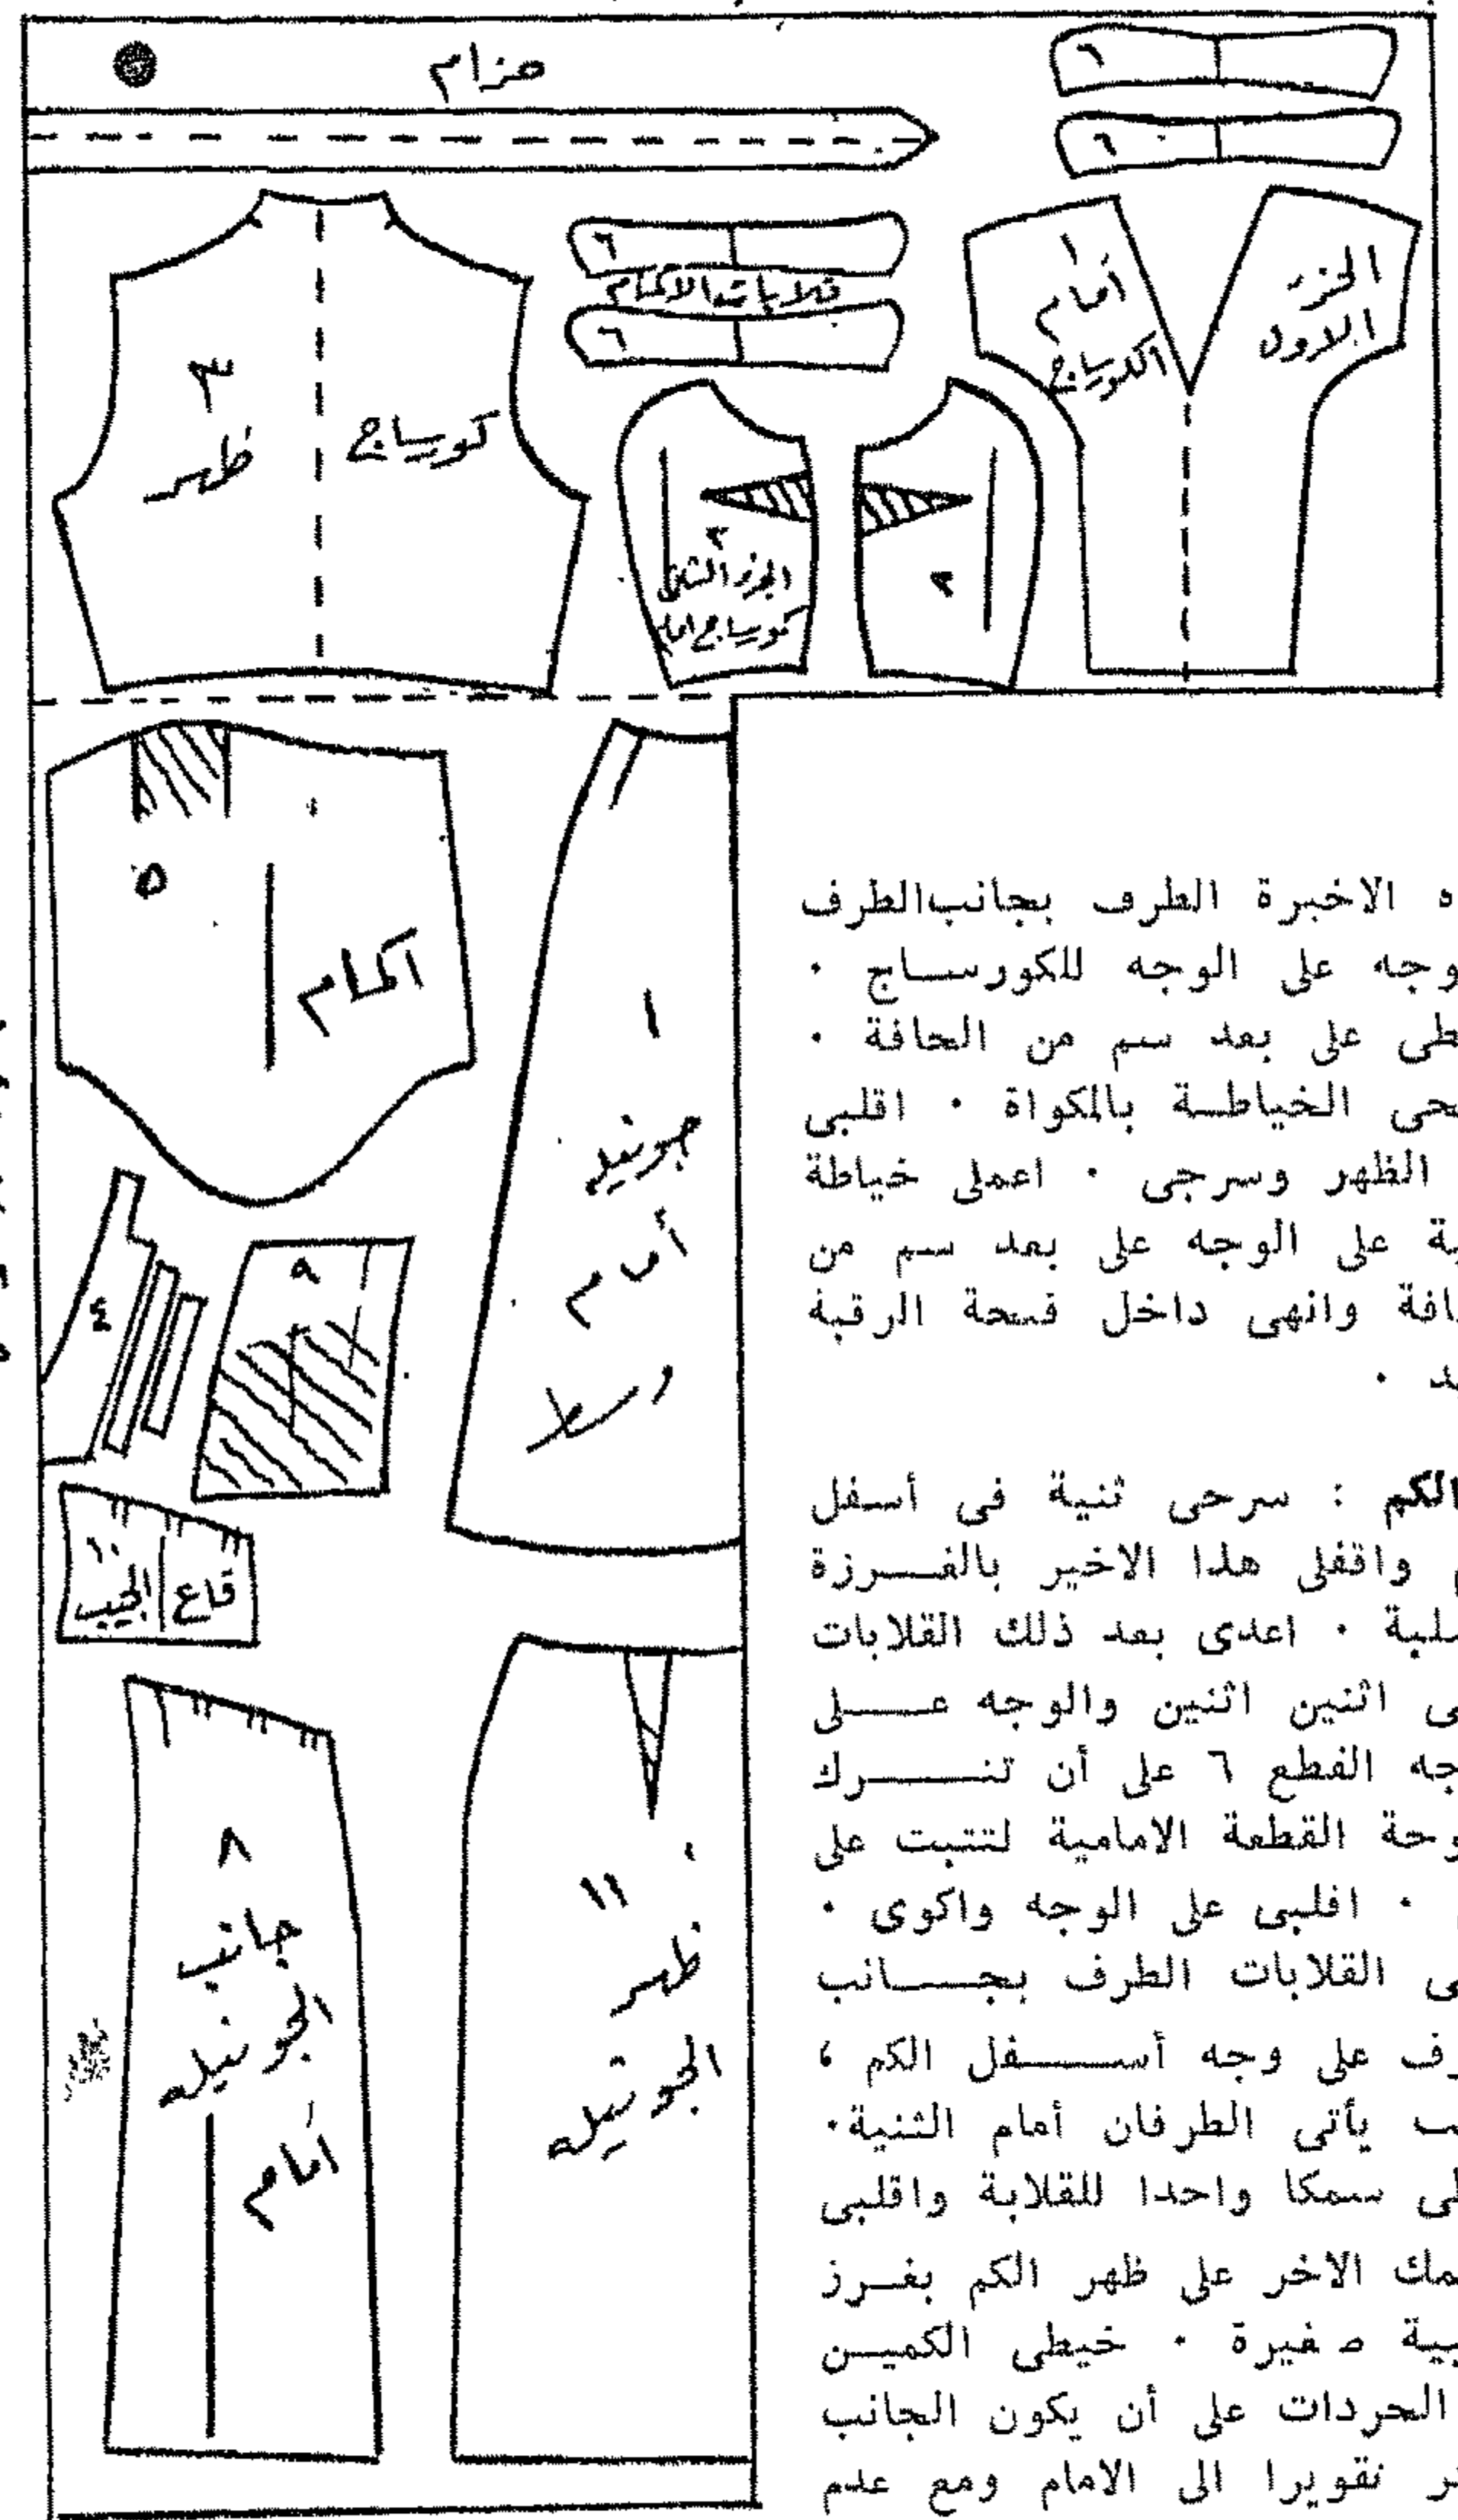 حزام
٦
٦
٦
قلابات الاكمام
٦
١
أمام
الكورساج
الجزء
الاول
٣
ظهر
كورساج
٢
الجزء الثانى
كورساج امام
٢
٥
اكمام
١
جونيله
أمام
وسط
٤
٩
١٠
قاع الجيب
٨
جانب
الجونيله
أمام
١١
ظهر
الجونيله
ه الاخيرة الطرف بجانب الطرف
وجه على الوجه للكورساج ٠
طى على بعد سم من الحافة ٠
حى الخياطة بالمكواة ٠ اقلبى
الظهر وسرجى ٠ اعملى خياطة
ية على الوجه على بعد سم من
افة وانهى داخل فتحة الرقبة
د ٠
الكم : سرحى ثنية فى أسفل
واقفلى هذا الاخير بالغرزة
لمية ٠ اعدى بعد ذلك القلابات
ى اثنين اثنين والوجه على
جه القطع ٦ على أن تترك
وحة القطعة الامامية لتتبت على
٠ اقلبى على الوجه واكوى ٠
ى القلابات الطرف بجانب
رف على وجه أسفل الكم ،
ب يأتى الطرفان أمام الثنية٠
طى سمكا واحدا للقلابة واقلبى
مك الاخر على ظهر الكم بغرز
بية صغيرة ٠ خيطى الكمين
الحردات على أن يكون الجانب
ر تقويرا الى الامام ومع عدم